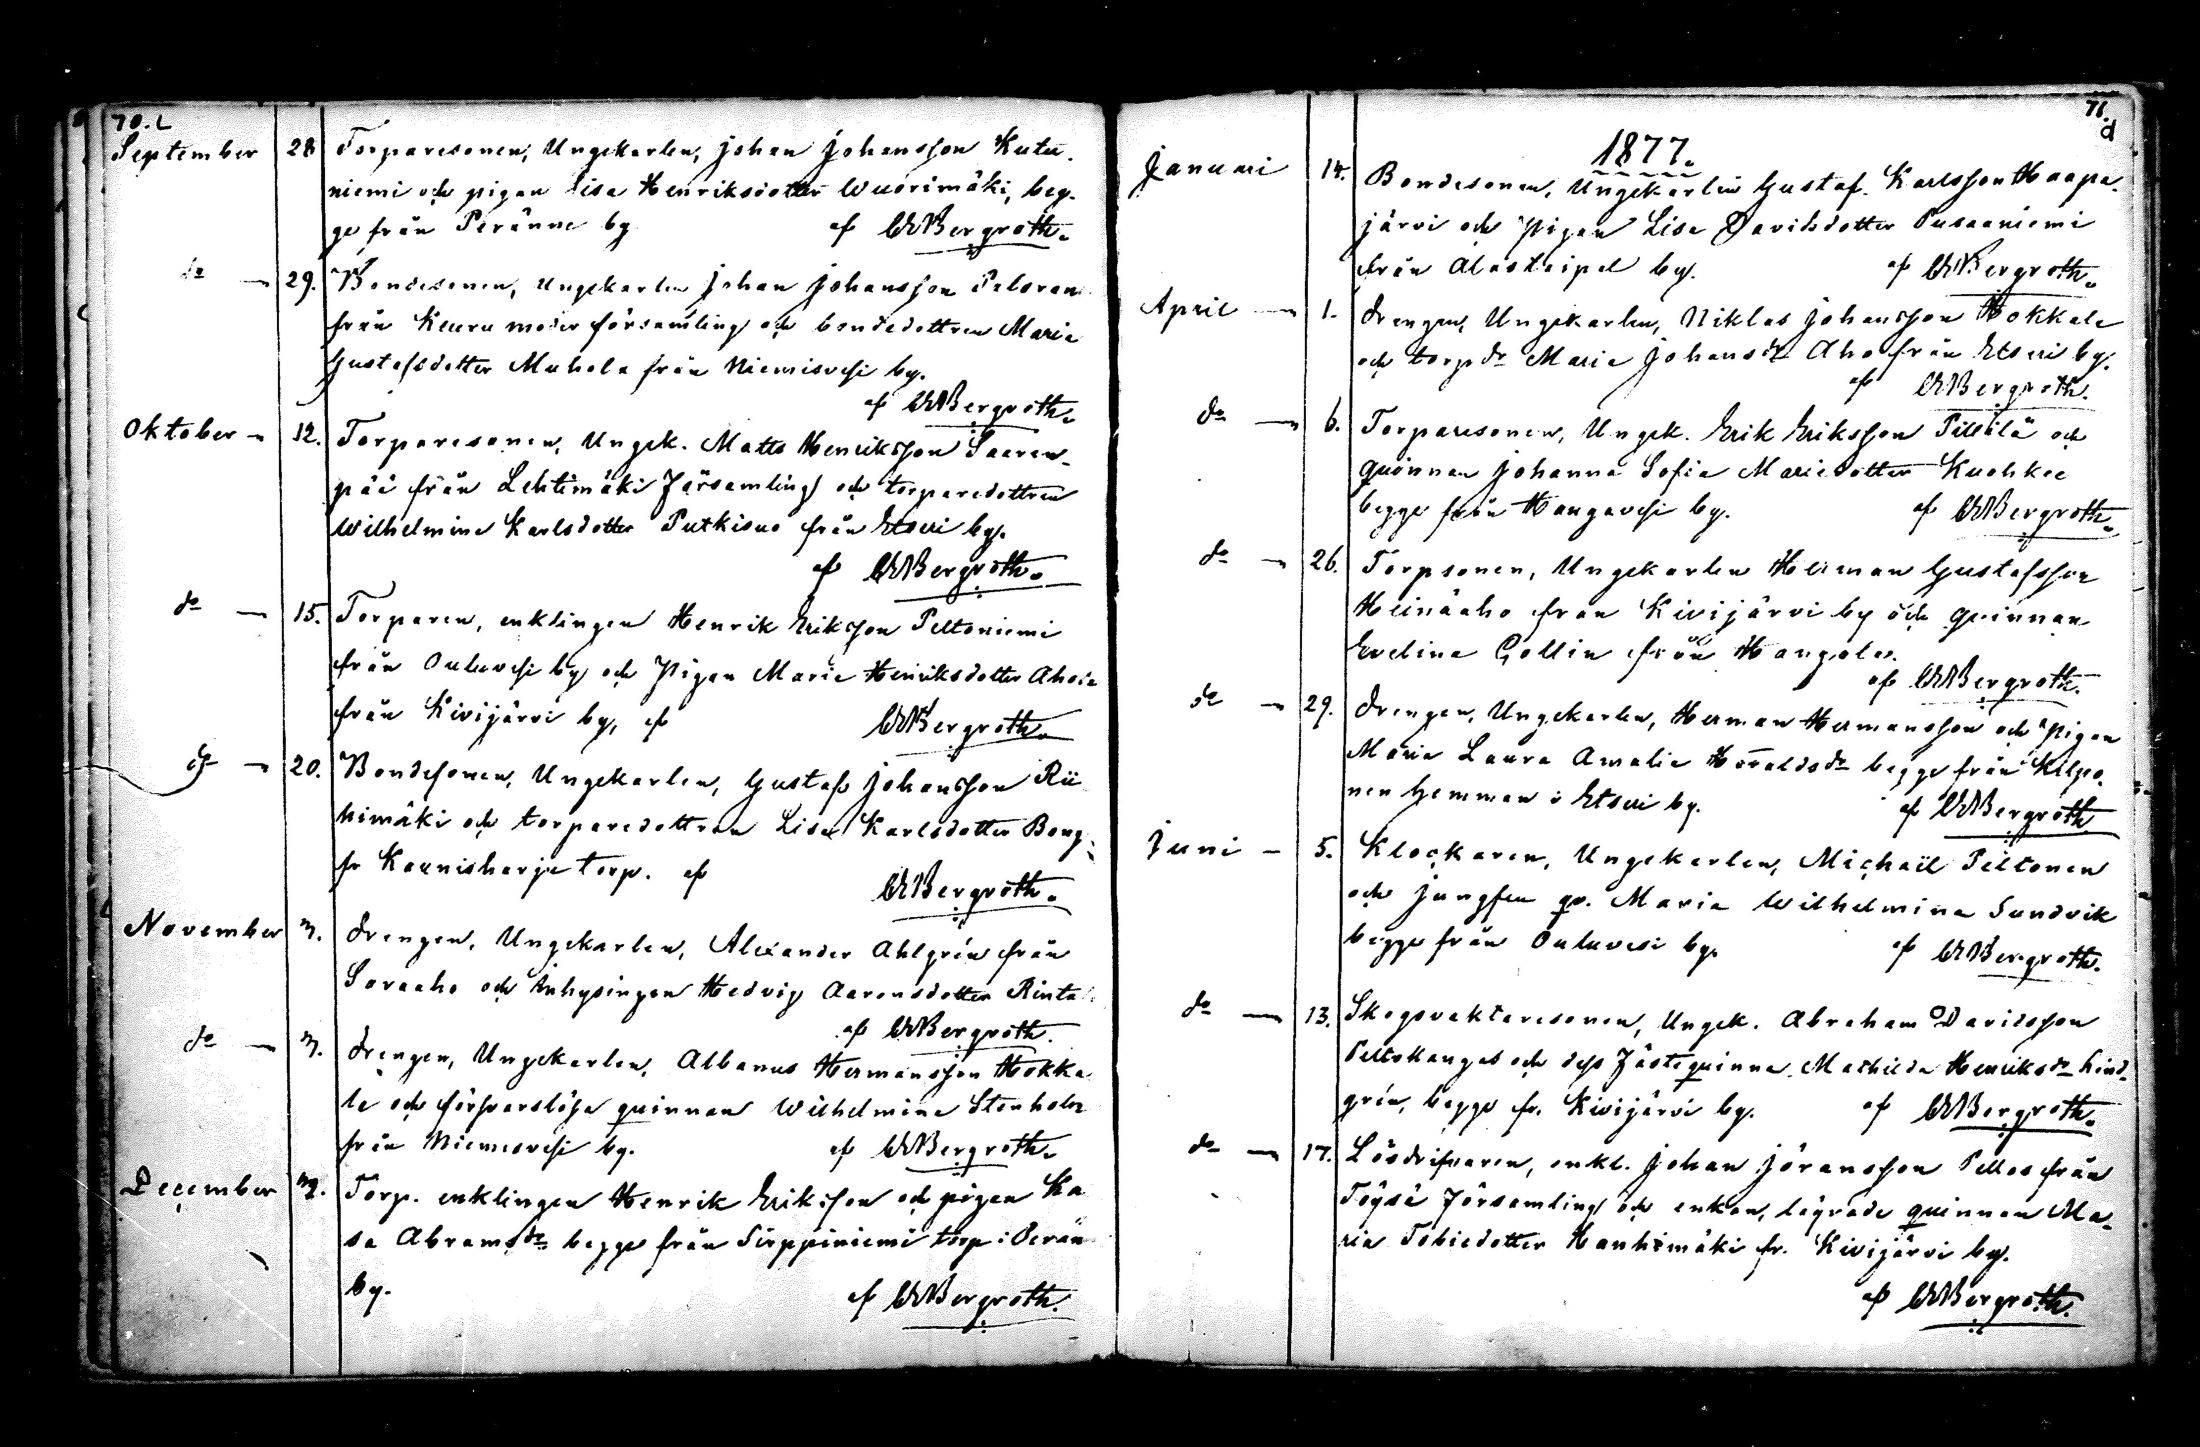 70.
September 28 Torparesonen, Ungekarlen, Johan Johansson Kutu-
niemi och pigan Lisa Henriksdotter Wuorimäki, beg-
ge från Peränne by af CWBergroth.
do — 29. Bondesonen, Ungekarlen Johan Johansson
från Keuru moderförsamling och bondedottren Maria
Gustafsdotter Muhola från Niemisvesi by.
af CWBergroth.
Oktober — 12. Torparesonen, Ungk. Matts Henriksson Saaren-
pää från Lehtimäki Församling och torparedottren
Wilhelmina Karlsdotter Putkisuo från Etseri by.
af CWBergroth.
do — 15. Torparen, enklingen Henrik Eriksson Peltoniemi
från Ouluvesi by och Pigan Maria Henriksdotter
från Kivijärvi by, af CWBergroth.
do — 20. Bondesonen, Ungekarlen, Gustaf Johansson Rii
himäki och torparedottren Lisa Karlsdotter
fr Kaunisharju torp. af CWBergroth.
November Drengen, Ungekarlen, Alexander Ahlgrén från
Soraaho och Inhysingen Hedvig Aaronsdotter Rinta
af CWBergroth.
do — Drengen, Ungekarlen, Albanus Hermansson Hokka
la och försvarslösa qvinnan Wilhelmina Stenholm
från Niemisvesi by. af CWBergroth.
December Torp. enklingen Henrik Eriksson och pigan Ka
sa Abramsdr begge från Sirppiniemi torp i Perän
by. af CWBergroth.
71.
d
1877.
Januari 14. Bondesonen, Ungekarlen Gustaf Karlsson Haapa-
järvi och Pigan Lisa Davidsdotter Pusaaniemi
från Alastaipal by. af CWBergroth.
April — 1. Drengen, Ungekarlen, Niklas Johansson Hokkala
och torpdr Maria Johansdr Aho från Etseri by.
af CWBergroth.
do — 6. Torparesonen, Ungk. Erik Eriksson och
qvinnan Johanna Sofia Mariedotter
begge från Hangavesi by. af CWBergroth.
do — 26. Torpsonen, Ungekarlen Herman Gustafsson
Heinäaho från Kivijärvi by och qvinnan
Evelina Gollin från
af CWBergroth.
do — 29. Drengen, Ungekarlen, Herman Hermansson och Pigan
Maria Laura Amalia begge från Kilpo-
nen hemman i Etseri by. af CWBergroth
Juni — 5. Klockaren, Ungekarlen, Michaël Peltonen
och jungfru qv. Maria Wilhelmina Sundvik
begge från Ouluvesi by. af CWBergroth.
do — 13. Skogsvaktaresonen, Ungk. Abraham Davidsson
Peltokangas och dess Fästeqvinna Mathilda Henriksdr Lind-
grén, begge fr. Kivijärvi by. af CWBergroth.
do — 17. Lösdrifvaren, enkl. Johan Jöransson från
Töysä Församling och enkan, lägrade qvinnan Ma-
ria Tobiedotter Hanhimäki fr. Kivijärvi by.
af CWBergroth.